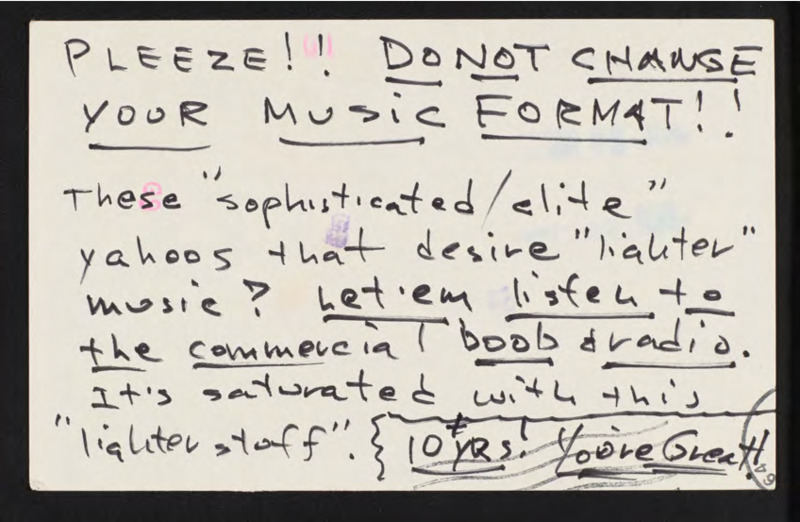 PLEEZE!! DO NOT CHANGE
YOUR MUSIC FORMAT!!
These "sophisticated/elite"
yahoos that desire "lighter"
music? Let 'em listen to
the commercial boob & radio.
It's saturated with this
"lighter stuff". { 10+ YRS! You're Great!